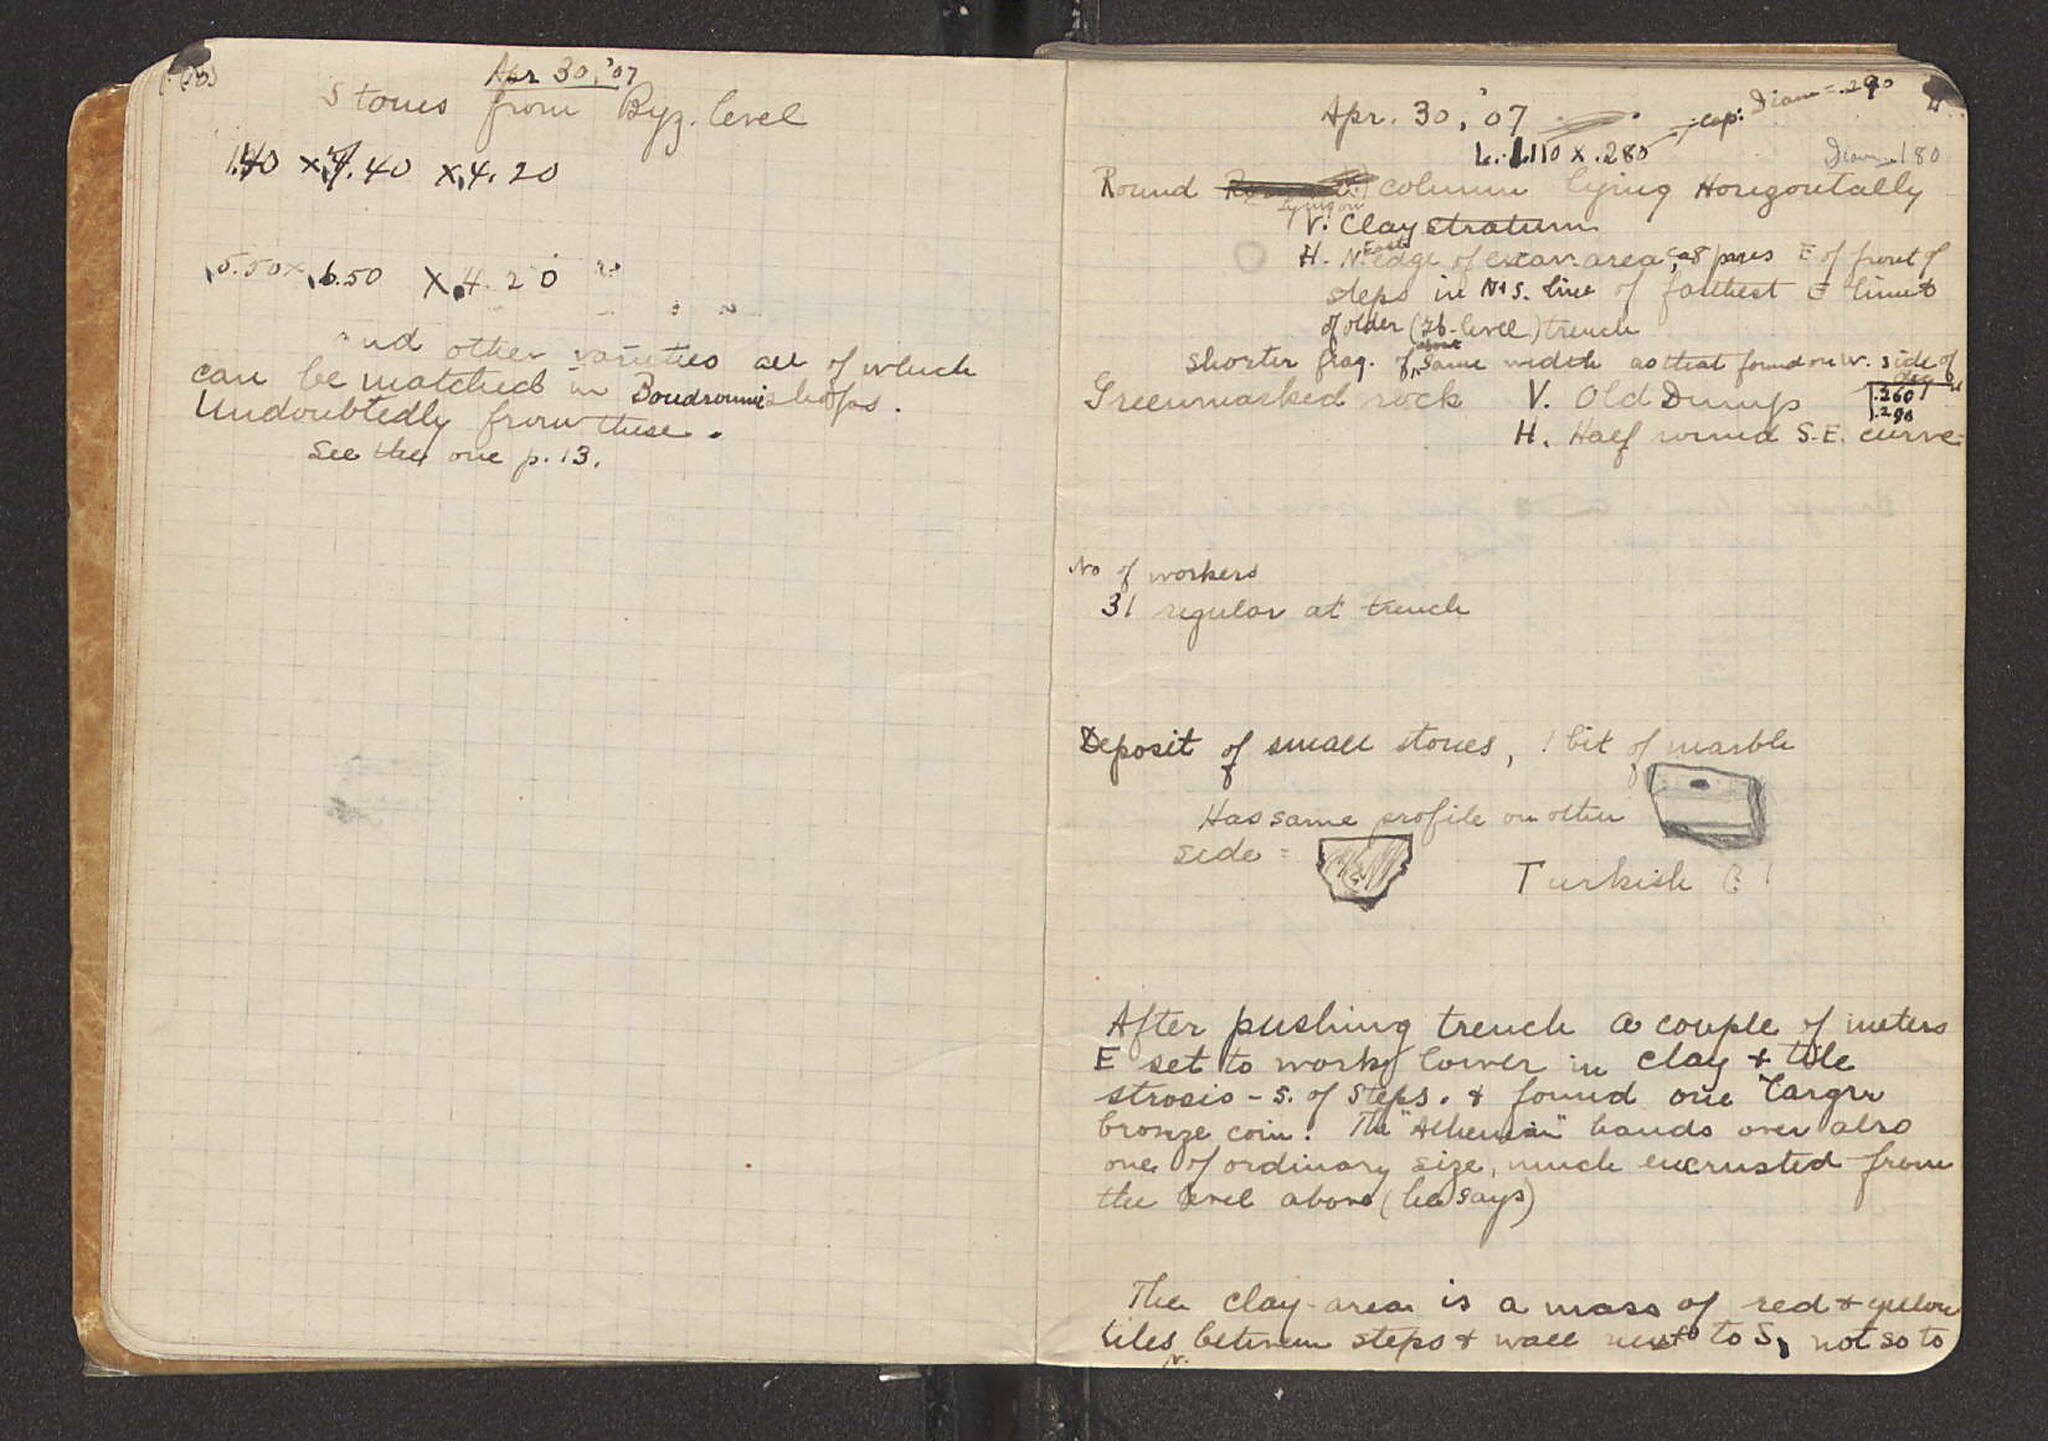 Apr 30, '07
Stones from Byz. level
1.40 x .40 x .4.20
.5.50 x .6.50 x .4.20
and other varieties all of which
can be matched in Boudroumi shops.
Undoubtedly from these.
See the one p. 13.
Apr. 30, '07
cap: Diam = .290
L. 1.110 x .280
Diam .180
Round column lying Horizontally
lying on
V. Clay stratum
H. N. East edge of excav. area, ca 8 paces E of front of
steps in N+S. line of farthest E limit
of older (Zb-level) trench
shorter frag. of about same width as that found on W. side of
Greenmarked rock V. Old Dump .260
.290
H. Half round S.E. curve
No of workers
31 regular at trench
Deposit of small stones, 1 bit of marble
Has same profile on other
side =
Turkish ?!
After pushing trench a couple of meters
E set to work lower in clay + tile
strosis - S. of Steps. + found one larger
bronze coin. The "Athenian" hands over also
one of ordinary size, much encrusted from
the level above (he says)
The clay-area is a mass of red + yellow
tiles between steps + wall next to S, not so to
N.